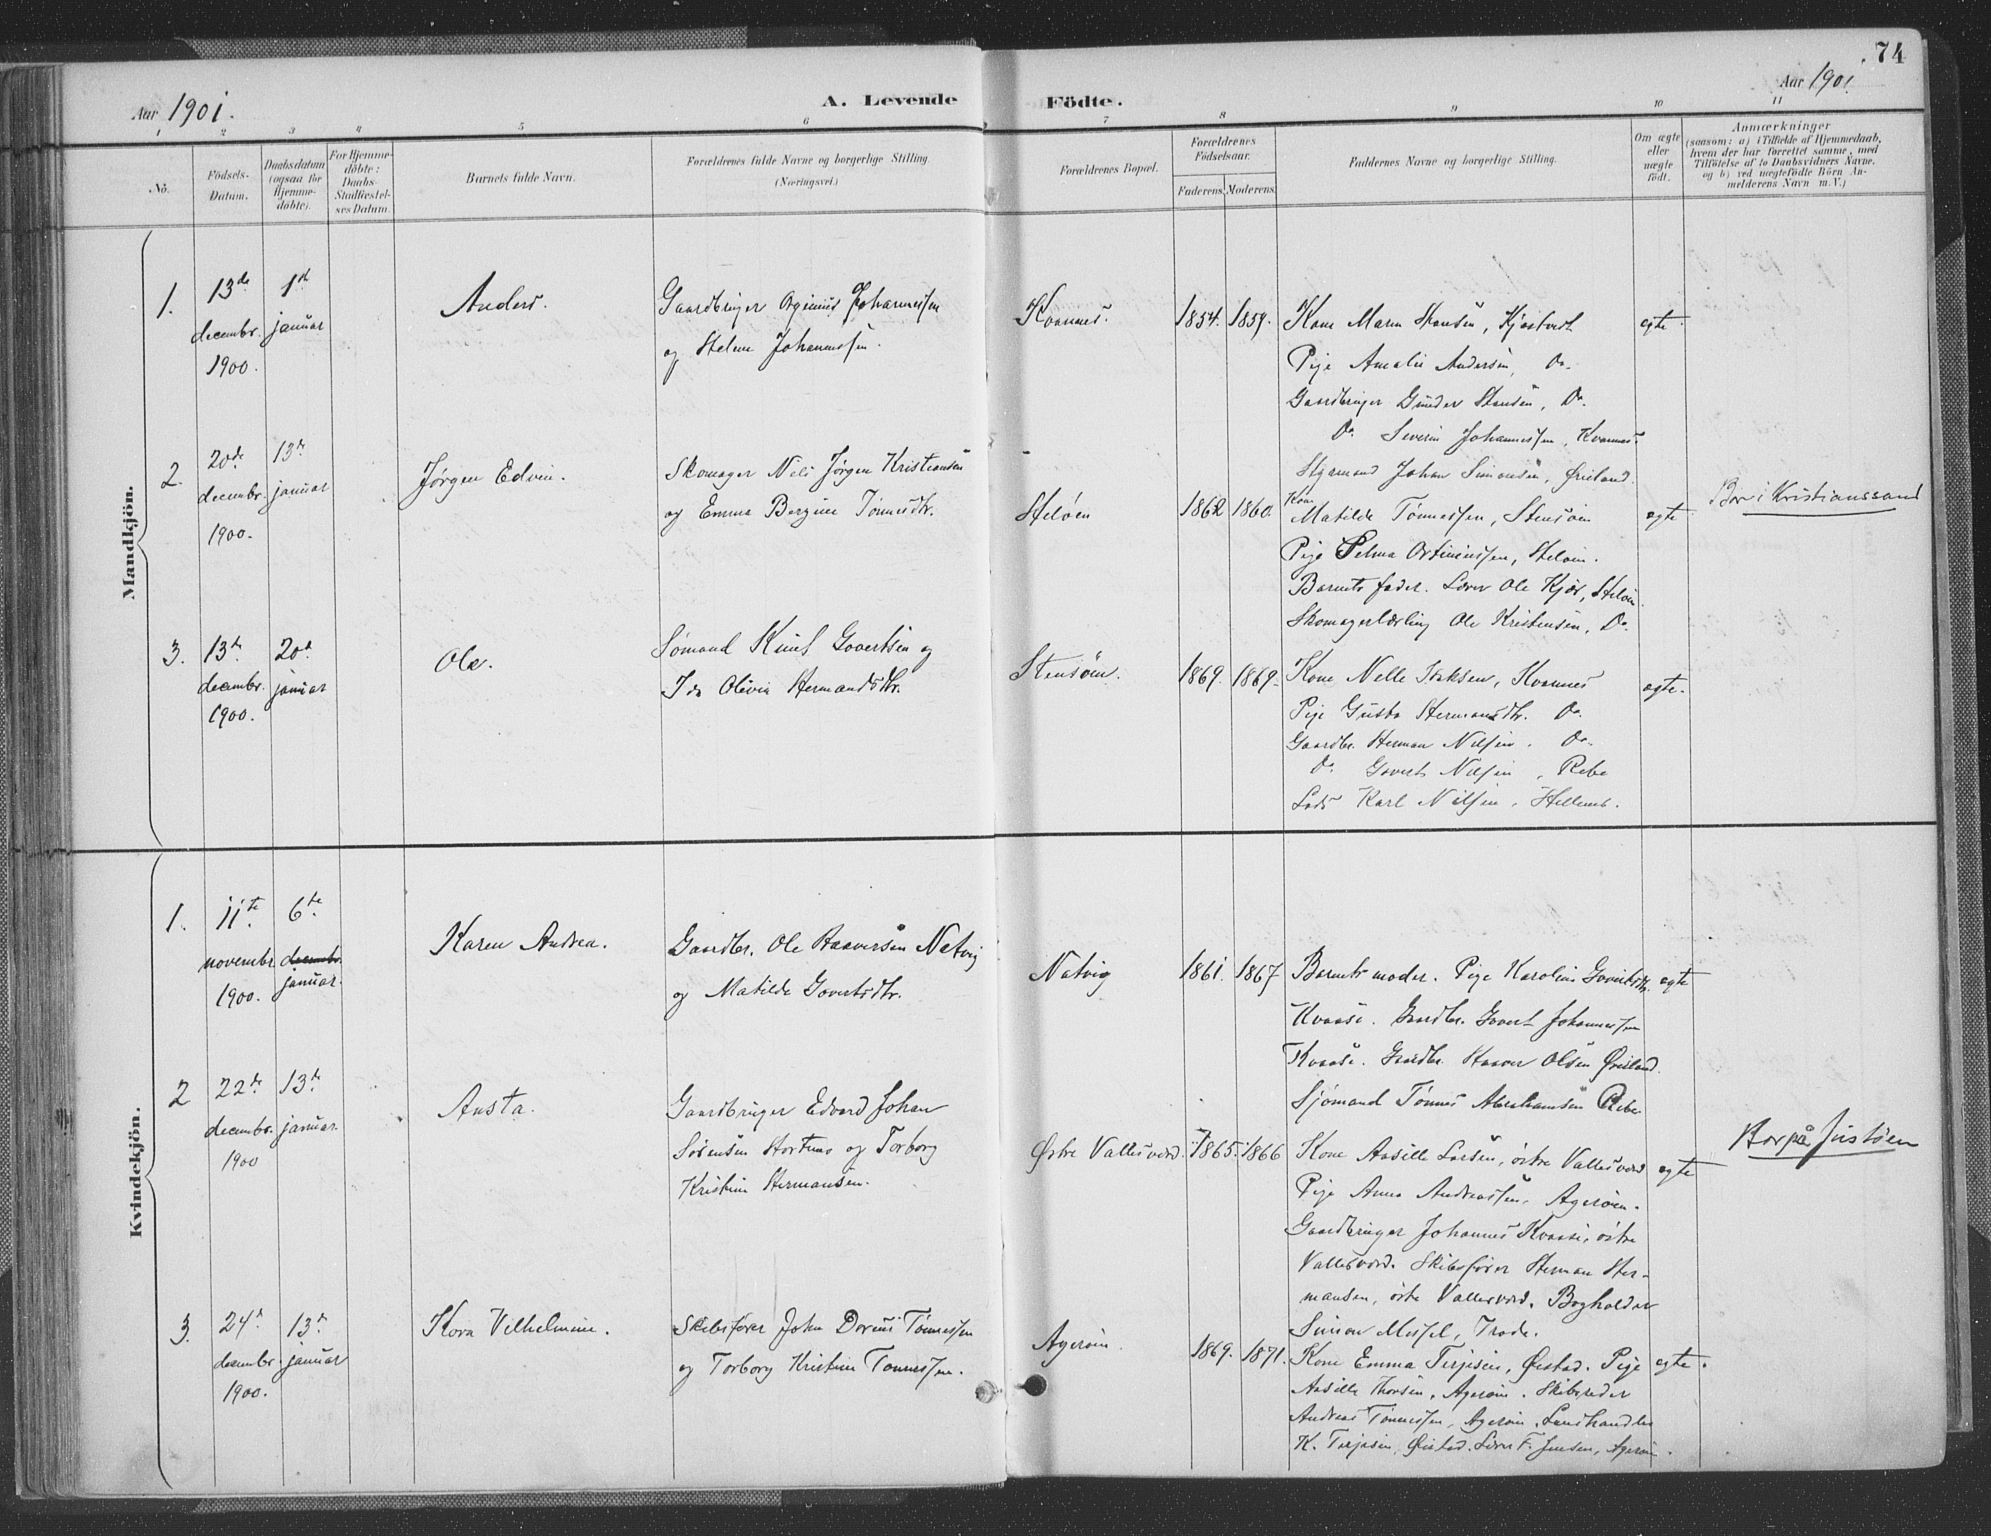 74
Aar 1901.
A. Levende Födte.
Aar 1901.
1 2 3 4 5 6 7 8 9 10 11
No.
Födsels-
Datum.
Daabsdatum
(ogsaa for
Hjemme-
döbte).
For Hjemme-
döbte:
Daabs-
Stadfæstel-
ses Datum.
Barnets fulde Navn.
Forældrenes fulde Navne og borgerlige Stilling.
(Næringsvei.)
Forældrenes Bopæl.
Forældrenes
Födselsaar.
Faderens. Moderens.
Faddernes Navne og borgerlige Stilling.
Om ægte
eller
uægte
födt.
Anmærkninger
(saasom: a) i Tilfælde af Hjemmedaab,
hvem der har forrettet samme, med
Tilföielse af to Daabsvidners Navne,
og b) ved uægtefödte Börn An-
melderens Navn m. V.)
Mandkjön.
1.
13de
decembr.
1900.
1ste
januar
Anders.
Gaardbruger Johannessen
og Johannessen.
1854. 1859.
Kone Maren
Pige Amalie Andersen, Do.
Gaardbruger Gunder Do.
Do. Severin Johannessen, Kvannes.
Styrmand Johan Simonsen, Øresland.
egte.
2.
20de
decembr.
1900.
13de
januar
Jørgen Edvin.
Skomager Nils Jørgen Kristiansen
og Emma Bergine Tønnesdtr.
Heløen
1862 1860.
Kone
Matilde Tønnessen, Stensøen
Pige Selma Heløen.
Barnets fader. Lærer Ole Kjær, Heløen.
Skomagerlærling Ole Kristensen, Do.
egte
Bor i Kristianssand
3.
13de
decembr.
1900.
20de
januar
Ole.
Sømand Knut Govertsen og
Ida Olivia Hermandsdtr.
Stensøen.
1869. 1869.
Kone Nelle Isaksen, Kvannes
Pige Gusta Hermansdtr. Do.
Gaardbr. Herman Nilsen. Do.
Do. Govert Nilsen, Rebe
Karl Nilsen,
egte.
Kvindekjön.
1.
11te
novembr.
1900.
6te
decembr.
januar.
Karen Andrea.
Gaardbr. Ole Haaversen Natvig
og Matilde Govertsdtr.
Natvig
1861. 1867
Barnets moder. Pige Karoline Govertsdtr.
Kvaase. Gaardbr. Govert Johannessen
Kvaase. Gaardbr. Haaver Olsen Øresland.
Sjømand Tønnes Abrahamsen Rebe
egte
2
22de
decembr.
1900
13de
januar.
Aasta.
Gaardbruger Edvard Johan
Sørensen og Torborg
Kristine Hermansen.
Østre Vallesværd.
1865. 1866
Kone Aasille Larsen, østre Vallesværd
Pige Anna Andreassen, Agerøen.
Gaardbruger Johannes Kvaase, østre
Vallesværd. Skibsfører Herman Her-
mansen, østre Vallesværd. Bogholder
Simon Trode.
egte
Bor på Justøen
3.
24de
decembr.
1900.
13de
januar
Kora Vilhelmine.
Skibsfører John Tønnessen
og Torborg Kristine Tønnessen.
Agerøen.
1869. 1871.
Kone Emma Terjesen, Øestad. Pige
Aasille Thorsen, Agerøen. Skibsreder
Andreas Tønnessen, Agerøen. Landhandler
K. Terjesen, Øestad. Lærer F. Jensen, Agerøen.
egte.